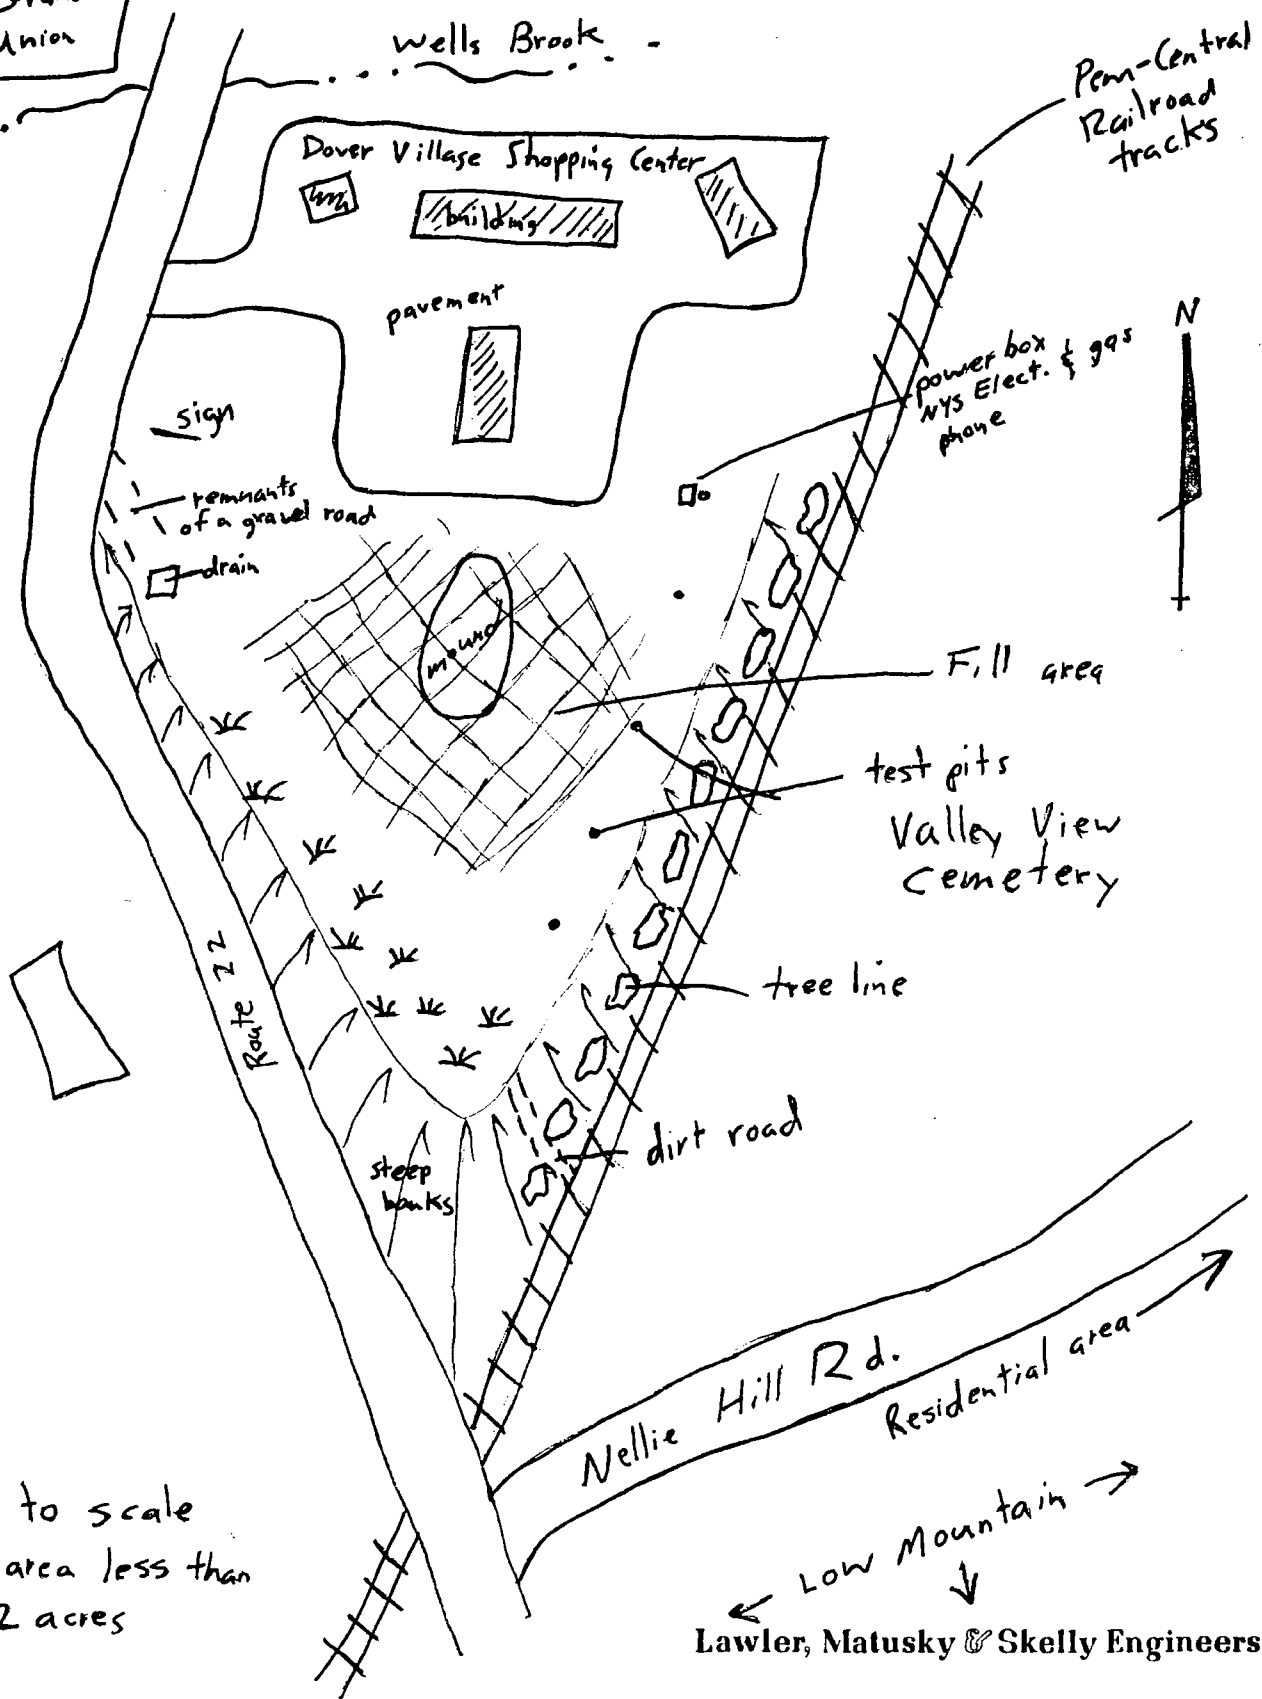 Union
Wells Brook
Penn-Central
Railroad
tracks
Dover Village Shopping Center
building
pavement
N
power box
NYS Elect. & gas
phone
sign
remnants
of a gravel road
drain
mound
Fill area
test pits
Valley View
Cemetery
Route 22
tree line
dirt road
steep
banks
Nellie Hill Rd.
Residential area
to scale
area less than
2 acres
Low Mountain
Lawler, Matusky & Skelly Engineers